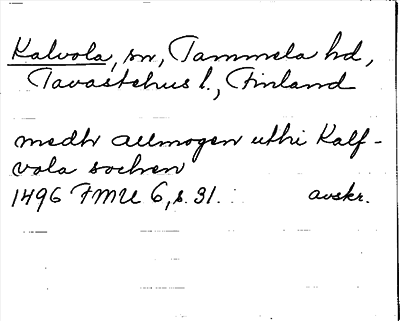 Kalvola, sn, Tammela hd,
Tavastehus l., Finland
medh allmogen uthi Kalf-
vola sochen
1496 FMU 6, s. 31. avskr.